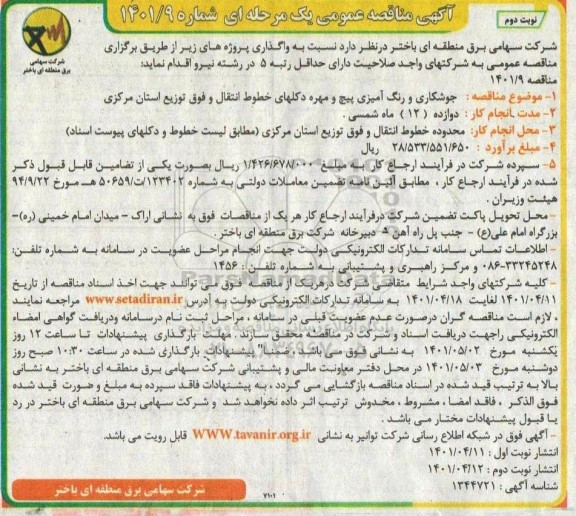 نوبت دوم
آگهی مناقصه عمومی یک مرحله ای شماره ۱۴۰۱/۹
شرکت سهامی
برق منطقه ای باختر
شرکت سهامی برق منطقه ای باختر درنظر دارد نسبت به واگذاری پروژه های زیر از طریق برگزاری
مناقصه عمومی به شرکتهای واجد صلاحیت دارای حداقل رتبه ۵ در رشته نیرو اقدام نماید:
مناقصه ۱۴۰۱/۹
۱- موضوع مناقصه : جوشکاری و رنگ آمیزی پیچ و مهره دکلهای خطوط انتقال و فوق توزیع استان مرکزی
۲- مدت انجام کار : دوازده ( ۱۲ ) ماه شمسی .
۳- محل انجام کار: محدوده خطوط انتقال و فوق توزیع استان مرکزی (مطابق لیست خطوط و دکلهای پیوست اسناد)
۴- مبلغ برآورد : ۲۸/۵۳۳/۵۵۱/۶۵۰ ریال
۵- سپرده شرکت در فرآیند ارجاع کار به مبلغ ۱/۴۲۶/۶۷۸/۰۰۰ ریال بصورت یکی از تضامین قابل قبول ذکر
شده در فرآیند ارجاع کار ، مطابق آئین نامه تضمین معاملات دولتی به شماره ۱۲۳۴۰۲/ت۵۰۶۵۹ هـ مورخ ۹۴/۹/۲۲
هیئت وزیران .
-محل تحویل پاکت تضمین شرکت درفرآیند ارجاع کار هر یک از مناقصات فوق به نشانی اراک - میدان امام خمینی (ره)-
بزرگراه امام علی(ع) - جنب پل راه آهن - دبیرخانه شرکت برق منطقه ای باختر .
-اطلاعات تماس سامانه تدارکات الکترونیکی دولت جهت انجام مراحل عضویت در سامانه به شماره تلفن:
۰۸۶-۳۳۲۴۵۲۴۸ و مرکز راهبری و پشتیبانی به شماره تلفن : ۱۴۵۶
- کلیه شرکتهای واجد شرایط متقاضی شرکت درهریک از مناقصه فوق می توانند جهت اخذ اسناد مناقصه از تاریخ
۱۴۰۱/۰۴/۱۱ لغایت ۱۴۰۱/۰۴/۱۸ به سامانه تدارکات الکترونیکی دولت به آدرس www.setadiran.ir مراجعه نمایند
، لازم است مناقصه گران درصورت عدم عضویت قبلی در سامانه ، مراحل ثبت نام درسامانه ودریافت گواهی امضاء
الکترونیکی راجهت دریافت اسناد و شرکت در مناقصه محقق سازند. مهلت بارگذاری پیشنهادات تا ساعت ۱۲ روز
یکشنبه مورخ ۱۴۰۱/۰۵/۰۲ به نشانی فوق می باشد. ضمنا" پیشنهادات بارگذاری شده در ساعت ۱۰:۳۰ صبح روز
دوشنبه مورخ ۱۴۰۱/۰۵/۰۳ در محل دفتر معاونت مالی و پشتیبانی شرکت سهامی برق منطقه ای باختر به نشانی
بالا به ترتیب قید شده در اسناد مناقصه بازگشایی می گردد ، به پیشنهادات فاقد سپرده به مبلغ و صورت قید شده
فوق الذکر ، فاقد امضا ، مشروط ، مخدوش ترتیب اثر داده نخواهد شد و شرکت سهامی برق منطقه ای باختر در رد
یا قبول پیشنهادات مختار می باشد .
- آگهی فوق در شبکه اطلاع رسانی شرکت توانیر به نشانی WWW.tavanir.org.ir قابل رویت می باشد.
انتشار نوبت اول : ۱۴۰۱/۰۴/۱۱
انتشار نوبت دوم : ۱۴۰۱/۰۴/۱۲
شناسه آگهی : ۱۳۴۴۷۲۱
۷۱۰۱
شرکت سهامی برق منطقه ای باختر